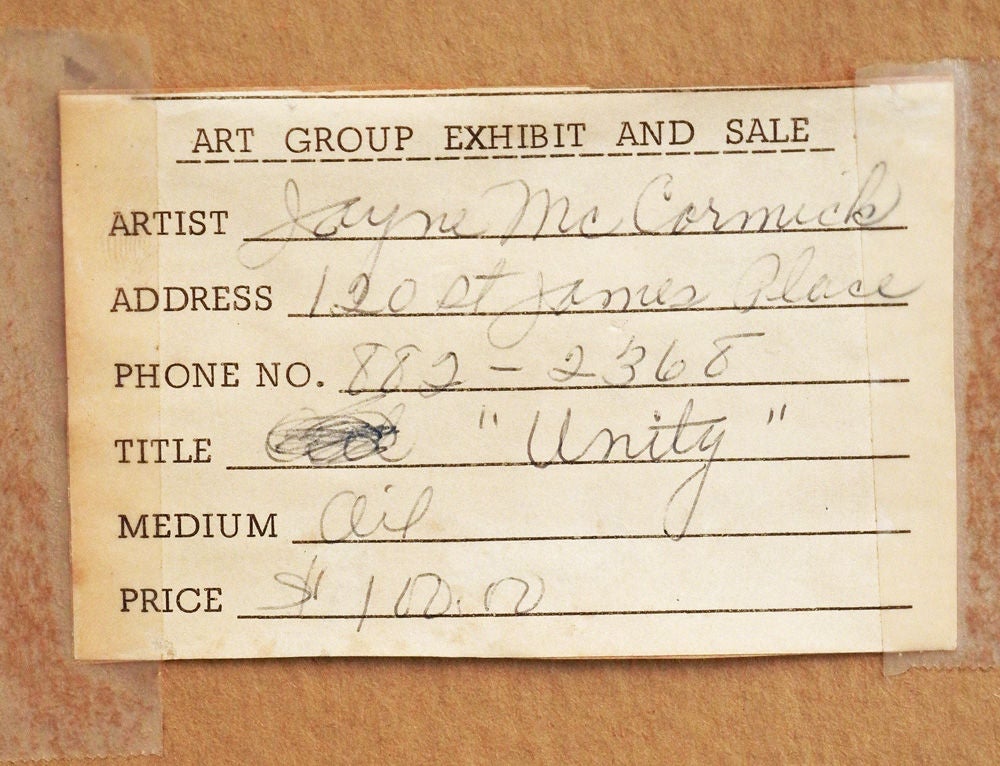 ART GROUP EXHIBIT AND SALE
ARTIST Jayne McCormick
ADDRESS 120 St James Place
PHONE NO. 882-2368
TITLE "Unity"
MEDIUM Oil
PRICE $100.00